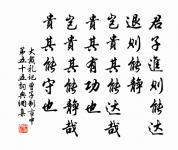 君子進則能达
退則能靜
豈貴其能达哉
貴其有功也
豈貴其能靜哉
貴其能守也
大戴礼記曾子制言中
第五十五詞典網集